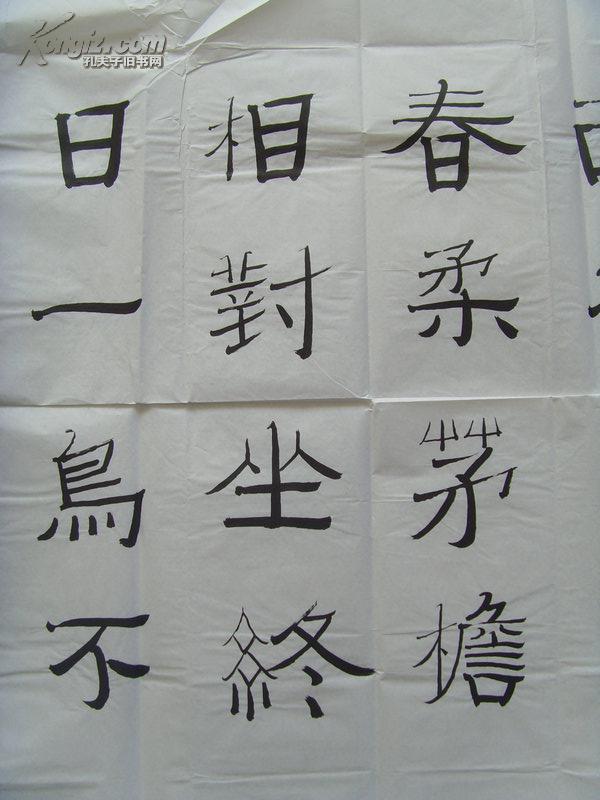 Kongfz.com
孔夫子旧书网
春柔茅檐
相對坐終
日一鳥不